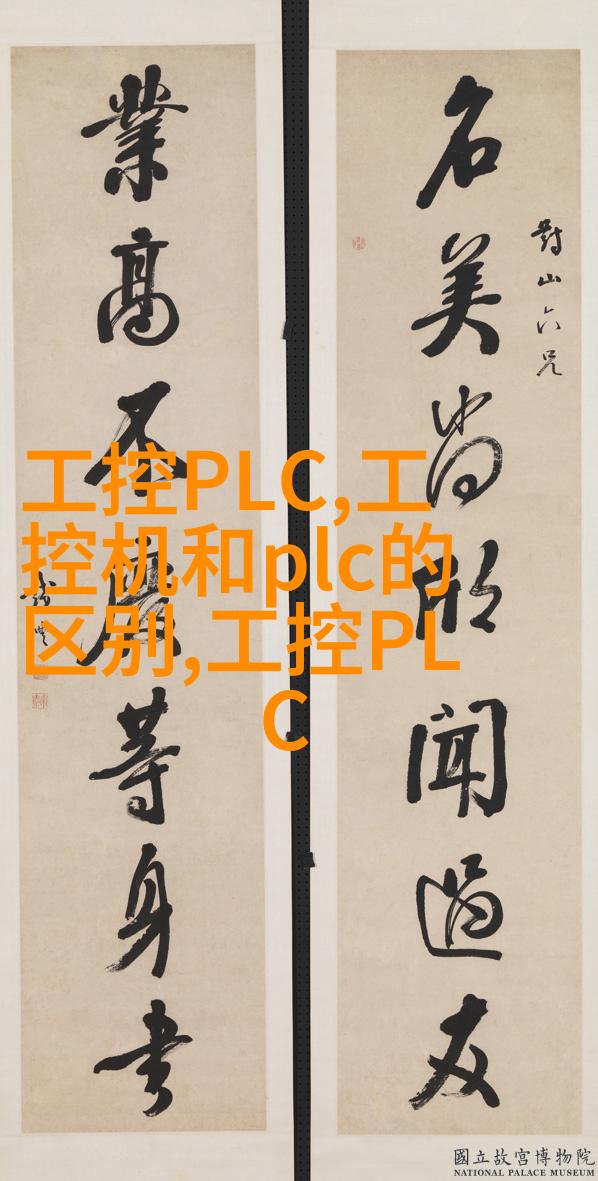 對山六兄
名美尚欣聞過友
業高不廢等身書
工控PLC,工
控机和plc的
区别,工控PL
C
國立故宮博物院
NATIONAL PALACE MUSEUM